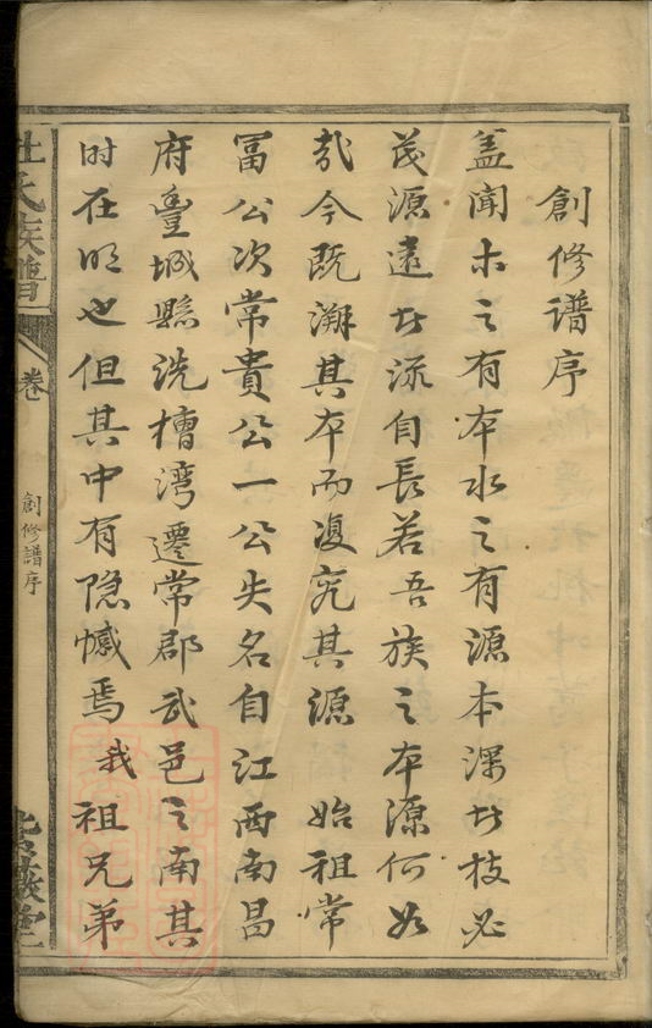 創修谱序
盖聞木之有本水之有源本深者枝必
茂源遠者流自長若吾族之本源何如
哉今既溯其本而復究其源 始祖常
冨公次常貴公一公失名自江西南昌
府豐城縣洗槽湾遷常郡武邑之南其
时在明也但其中有隐憾焉 我祖兄弟
杜氏族譜
卷
創修譜序
堂